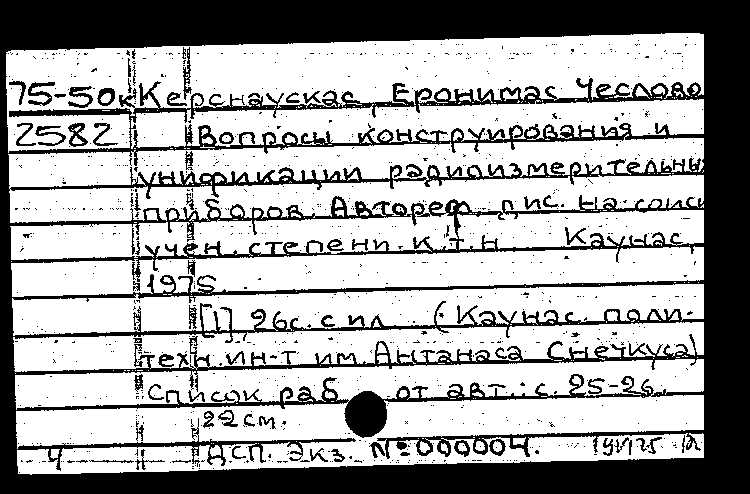 75-50к Керснаускас, Еронимас Чеслово
2582 Вопросы конструирования и
унификации радиоизмерительны
приборов. Автореф. дис. на соиск
учен. степени к.т.н. Каунас,
1975.
[1], 26с. с ил. (Каунас. поли-
техн. ин-т им. Антанаса Снечкуса)
Список раб от авт.: с. 25-26.
22 см.
ч ДСП. Экз. №000004.